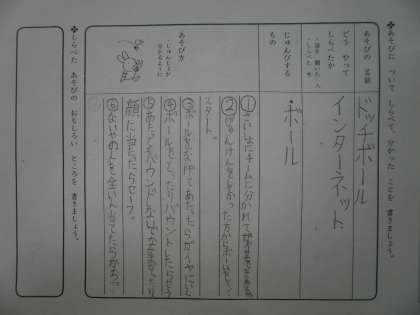 ✤あそびに ついて しらべて、分かった ことを 書きましょう。
あそびの 名前
ドッチボール
どう やって
しらべたか
・話を 聞いた 人
・しらべた 本
インターネット
じゅんびする
もの
・ボール
あそび方
・じゅんじょが
分かるように
①さいしょにチームに分かれて
②じゃんけんをしてかった方からボールをもって
スタート。
③ボールをなげてあたったらがいやにいく
④ボールをとったりバウンドしたらセーフ
⑤あたってもバウンドしない
顔に当たったらセーフ。
⑥ないやの人を全いん当てたらかち。
✤しらべた あそびの おもしろい ところを 書きましょう。